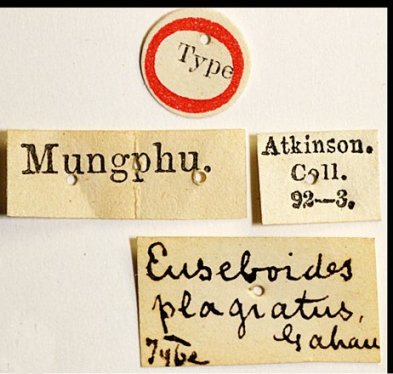 Type
Mungphu.
Atkinson.
Coll.
92—3.
Euseboides
plagiatus,
Gahan
Type